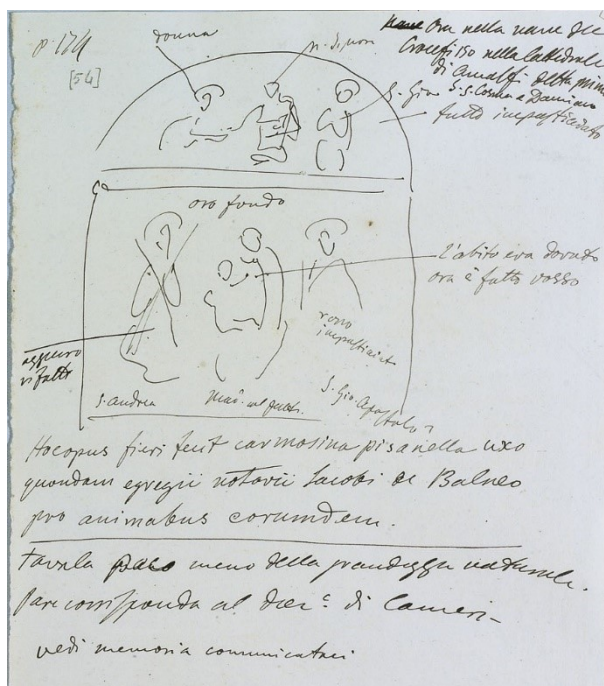 p. 174
[54]
donna
n. Signore
Ora nella nave del
Crocefisso nella Cattedrale
di Amalfi detta prima
S.S. Cosma e Damiano
S. Gio
tutto impasticciato
oro fondo
L'abito era dorato
ora è fatto rosso
rosso
impasticciato
azzurro
rifatto
S. Andrea
Mad. col putt.
S. Gio. Apostolo
Hocopus fieri fecit carmosina pisanella uxo
quondam egregii notarii Iacobi de Balneo
pro animabus eorumdem.
Tavola poco meno della grandezza naturale.
Pare corrisponda al di
vedi memoria comunicatami